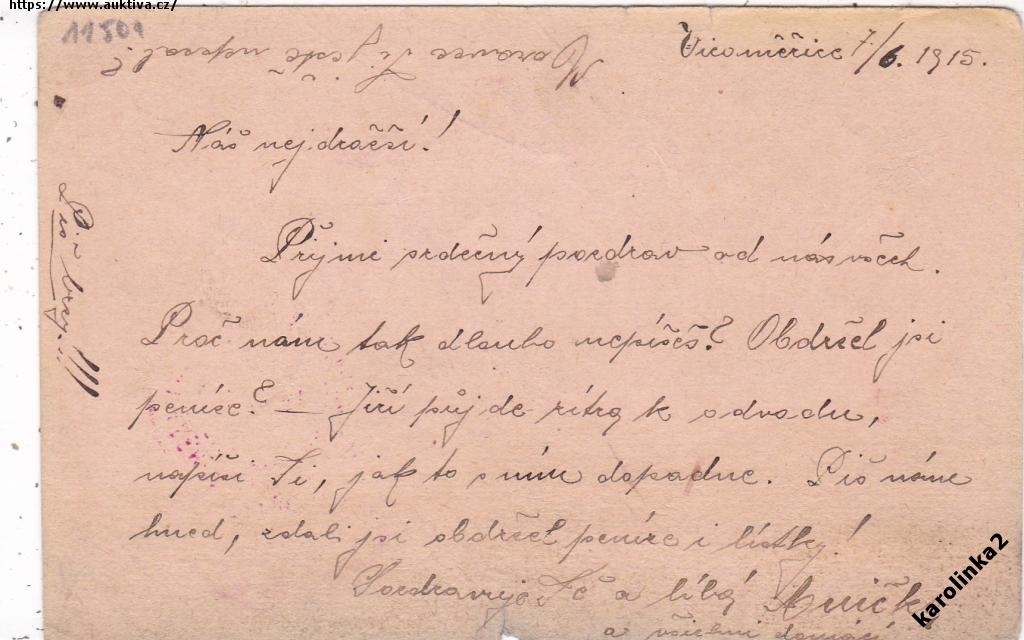 https://www.auktiva.cz/
11501
Vicoměřice 7./6. 1915.
Ti ještě nepsal?
Náš nejdražší!
Piš brzy.!!!
Přijmi srdečný pozdrav od nás všech.
Proč nám tak dlouho nepíšeš? Obdržel jsi
peníze? — Jiří půjde zítra k odvodu,
napíši Ti, jak to s ním dopadne. Piš nám
hned, zdali jsi obdržel peníze i lístky!
Pozdravuje Tě a líbá Anička
a všichni domácí
karolinka2